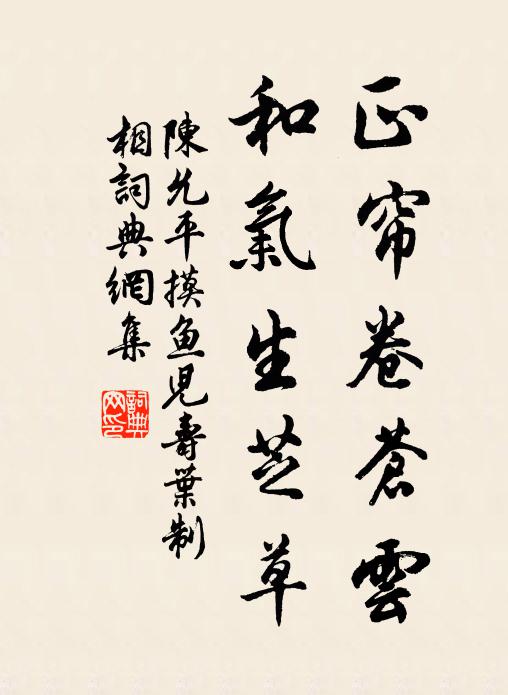 正帘卷蒼雲
和氣生芝草
陳允平摸魚兒壽葉制
相詞典網集
詞典
网印